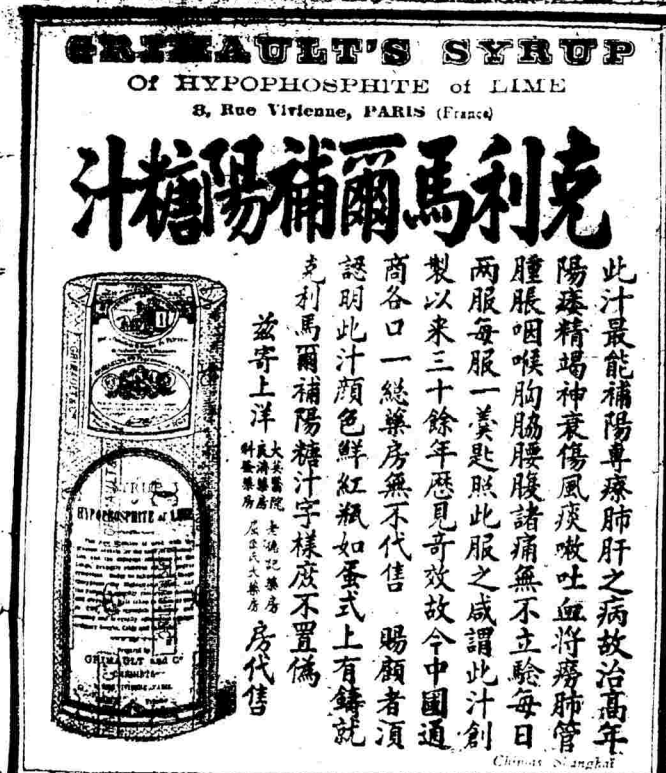 GRIMAULT'S SYRUP
Of HYPOPHOSPHITE of LIME
8, Rue Vivienne, PARIS (France)
克利馬爾補陽糖汁
此汁最能補陽專療肺肝之病故治高年
陽痿精竭神衰傷風痰嗽吐血將癆肺管
腫脹咽喉胸脇腰腹諸痛無不立驗每日
两服每服一羹匙照此服之咸謂此汁創
製以来三十餘年歷見奇效故今中國通
商各口一總藥房無不代售 賜顧者須
認明此汁顔色鮮紅瓶如蛋式上有鑄就
克利馬爾補陽糖汁字樣庶不置偽
兹寄上洋
大英醫院
老德記藥房
屈臣氏大藥房
房代售
HYPOPHOSPHITE of LIME
GRIMAULT and Cº